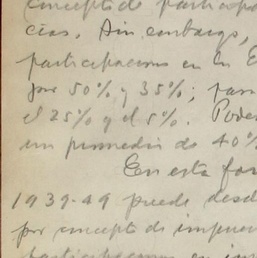 concepto de participa
cias. Sin embargo,
participaciones en la E
por 50% y 35%; para
el 25% y el 5%. Pode
un promedio de 40%
En esta for
1939-49 puede desd
por concepto de impues
participaciones en im